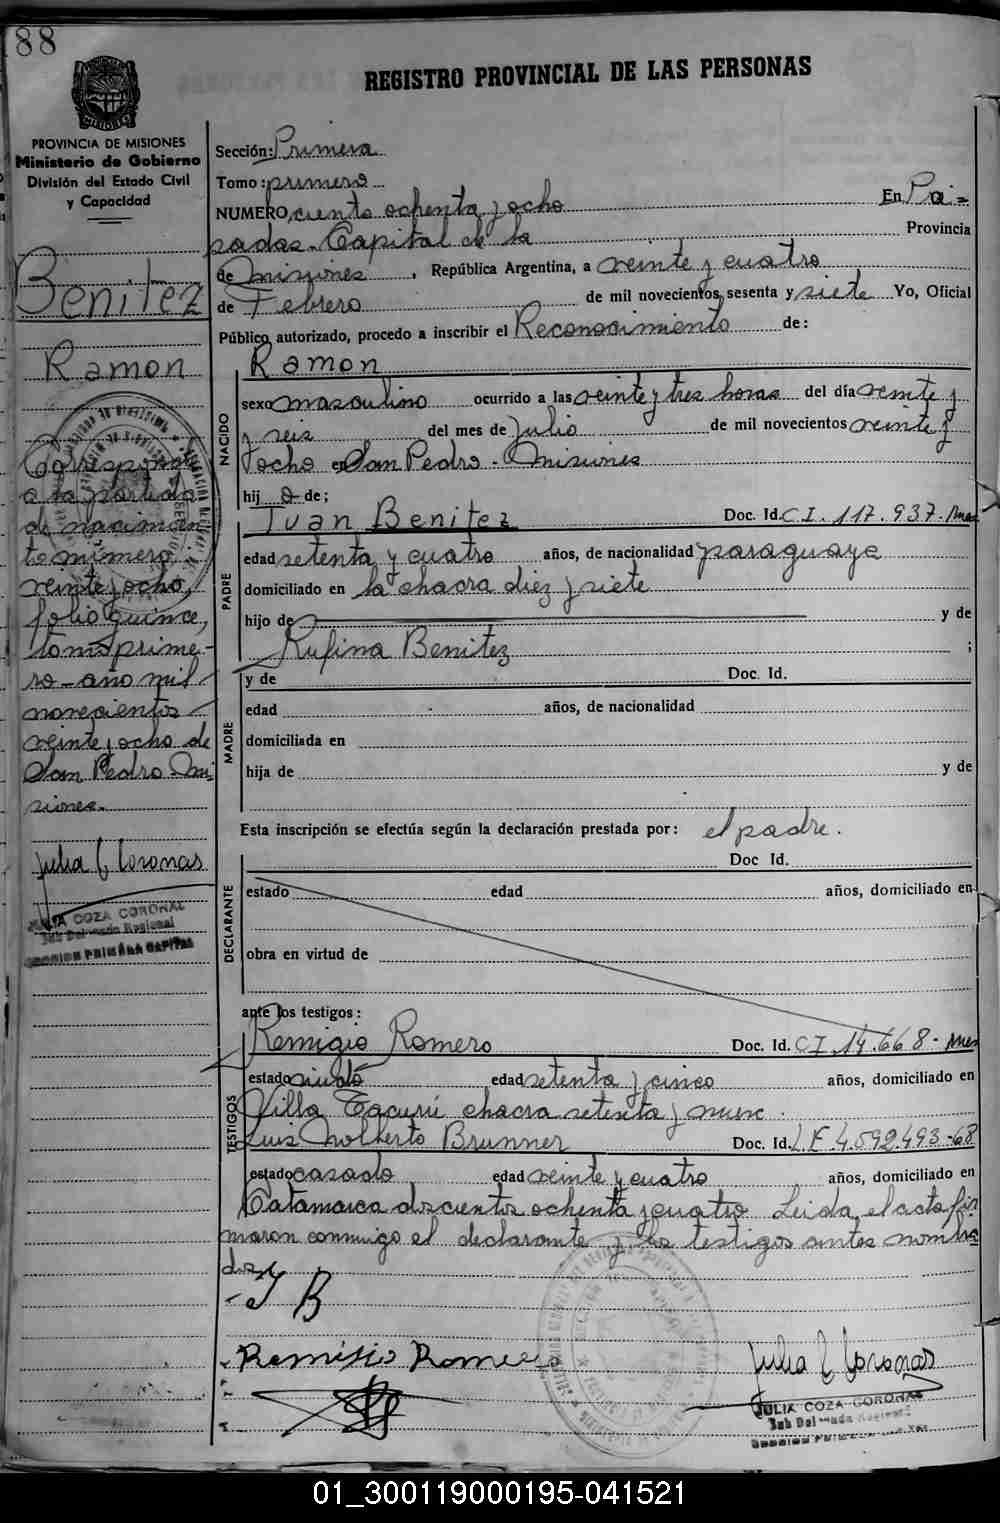 88
REGISTRO PROVINCIAL DE LAS PERSONAS
PROVINCIA DE MISIONES
Ministerio de Gobierno
División del Estado Civil
y Capacidad
Benitez
Ramon
Corresponde
a la partida
de nacimien
to número
veinte y ocho,
folio quince,
tomo prime-
ro - año mil
novecientos
veinte y ocho de
San Pedro Mi
siones.
JULIA COZA CORONAL
Sub Delegada Regional
SECCION PRIMERA CAPITAL
Sección: Primera
Tomo: primero
NUMERO, ciento ochenta y ocho En Po-
sadas. Capital de la Provincia
de Misiones, República Argentina, a veinte y cuatro
de Febrero de mil novecientos, sesenta y siete Yo, Oficial
Público autorizado, procedo a inscribir el Reconocimiento de:
Ramon
NACIDO
sexo masculino ocurrido a las veinte y tres horas del día veinte y
y seis del mes de Julio de mil novecientos veinte y
ocho en San Pedro - Misiones
hij o de;
PADRE
Juan Benitez Doc. Id. C.I. 117.937. Mnes
edad setenta y cuatro años, de nacionalidad paraguaya
domiciliado en la chacra diez y siete
hijo de y de
Rufina Benitez ;
MADRE
y de Doc. Id.
edad años, de nacionalidad
domiciliada en
hija de y de
Esta inscripción se efectúa según la declaración prestada por: el padre.
DECLARANTE
Doc Id.
estado edad años, domiciliado en
obra en virtud de
ante los testigos:
TESTIGOS
Remigio Romero Doc. Id. C I. 14.668 - Mnes
estado viudo edad setenta y cinco años, domiciliado en
Villa Tacurú chacra setenta y nueve.
Luis Nolberto Brunner Doc. Id. L.E 4.592.493-68
estado casado edad veinte y cuatro años, domiciliado en
Catamarca doscientos ochenta y cuatro Leida el acta fir
maron conmigo el declarante y los testigos antes nombra
dos
J B
Remisio Romero
JULIA COZA CORONAL
Sub Delegada Regional
01_300119000195-041521